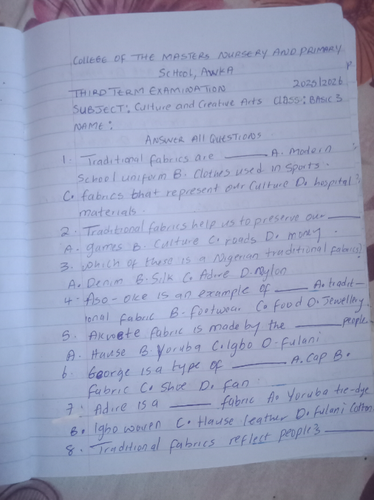 College OF THE MASTERS NURSERY AND PRIMARY
School, AWKA
THIRD TERM EXAMINATION 2025/2026
SUBJECT: Culture and Creative Arts CLASS: BASIC 3
NAME:
ANSWER All QUESTIONS
1. Traditional fabrics are ____ A. Modern
School uniform B. Clothes used in Sports.
C. fabrics that represent our Culture D. hospital
materials.
2. Traditional fabrics help us to preserve our ____
A. games B. Culture C. roads D. money.
3. Which of there is a Nigerian traditional fabric?
A. Denim B. Silk C. Adire D. Nylon
4. Aso-oke is an example of ____ A. tradit-
ional fabric B. footwear C. food D. Jewellry
5. Akwete fabric is made by the ____ people.
A. Hausa B. Yoruba C. Igbo D. fulani
6. George is a type of ____ A. Cap B.
fabric C. Shoe D. fan
7. Adire is a ____ fabric A. Yoruba tie-dye
B. Igbo woven C. Hausa leather D. fulani Cotton
8. Traditional fabrics reflect people's ____